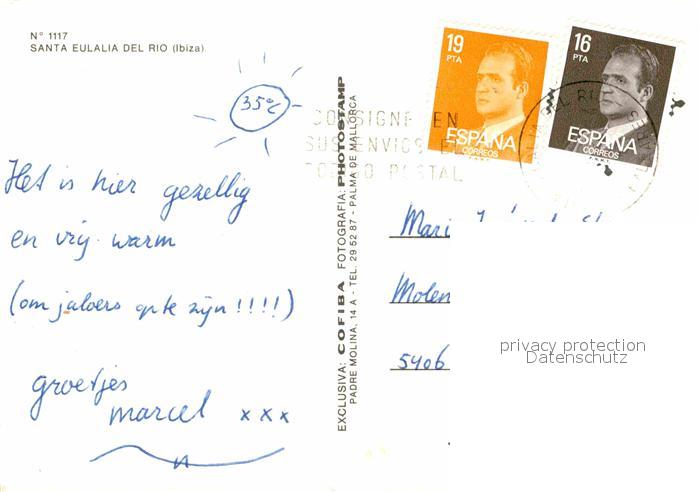 Nº 1117
SANTA EULALIA DEL RIO (Ibiza)
35°C
Het is hier gezellig
en vrij warm
(om jaloers op te zijn !!!!)
groetjes
marcel x x x
EXCLUSIVA: COFIBA FOTOGRAFIA: PHOTOSTAMP
PADRE MOLINA, 14 A - TEL. 29 52 87 - PALMA DE MALLORCA
19
PTA
ESPAÑA
CORREOS
16
PTA
ESPAÑA
CORREOS
CONSIGNE EN
SUS ENVIOS E
POSTAL
Mari
Molen
5406
privacy protection
Datenschutz